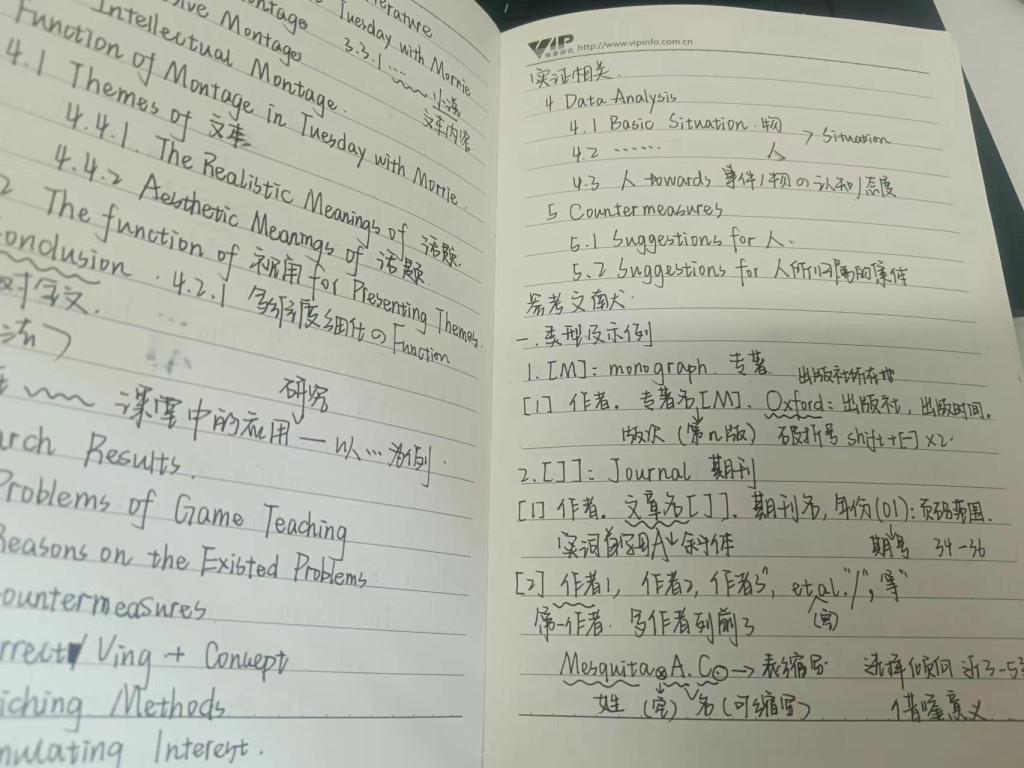 terature
ontage Tuesday with Morrie
sive Montage 3.3.1 …… 小说
Intellectual Montage. 文本内容
Function of Montage in Tuesday with Morrie.
4.1 Themes of 文本
4.4.1. The Realistic Meanings of 话题.
4.4.2 Aesthetic Meanings of 话题.
2 The function of 视角 for Presenting Themes.
onclusion. 4.2.1 多维度细化の Function
对全文. …
法)
研究
课堂中的应用 — 以…为例.
arch Results.
Problems of Game Teaching
Reasons on the Existed Problems
ountermeasures
rrect Ving + Concept
iching Methods
mulating Interest.
VIP http://www.vipinfo.com.cn
实证相关.
4 Data Analysis
4.1 Basic Situation. 物 > Situation
4.2 …… 人
4.3 人 towards 事件/物の认知/态度
5 Countermeasures
5.1 Suggestions for 人.
5.2 Suggestions for 人所归属的集体
参考文献.
一.类型及示例
1. [M]: monograph. 专著. 出版社所在地
[1] 作者. 专著名[M]. Oxford: 出版社, 出版时间.
版次 (第n版) 破折号 shift+[-] ×2.
2. [J]: Journal 期刊
[1] 作者. 文章名[J]. 期刊名, 年份(01): 页码范围.
实词首字母A 余小体 期号 34-36
[2] 作者1, 作者2, 作者3, et al."/", 等"
第一作者. 多作者列前3 (空)
Mesquita A. C. → 表缩写 选择倾向 近3-5
姓 (空) 名 (可缩写) 借鉴意义